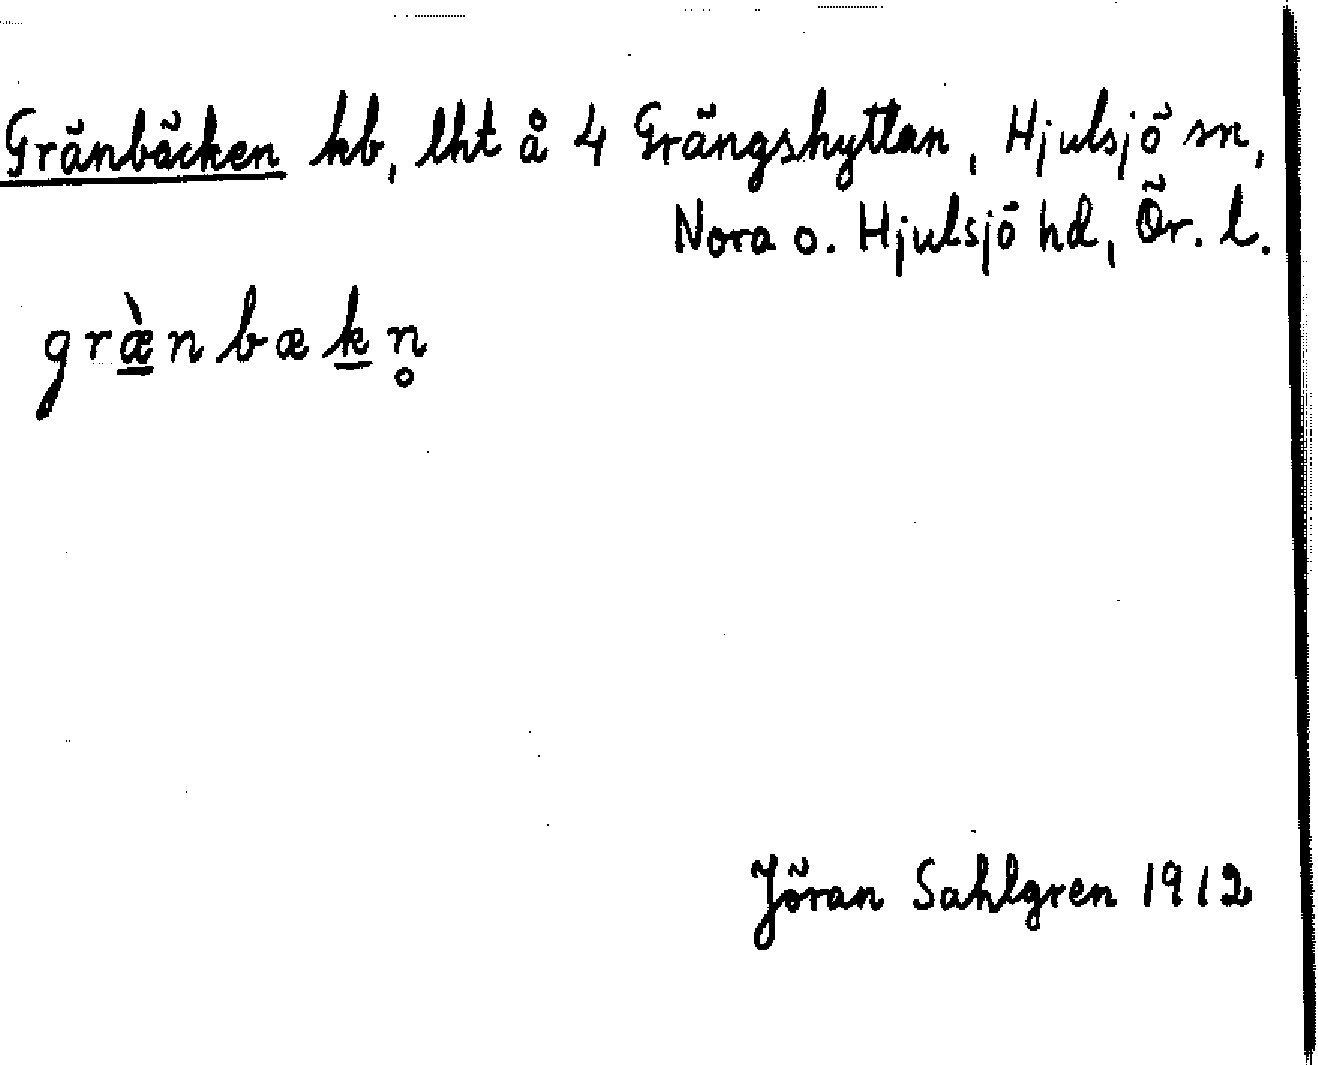 Gränbäcken kb, lht å 4 Grängshyttan, Hjulsjö sn,
Nora o. Hjulsjö hd, Ör. l.
græ̲̀nbæk̲n̥
Jöran Sahlgren 1912